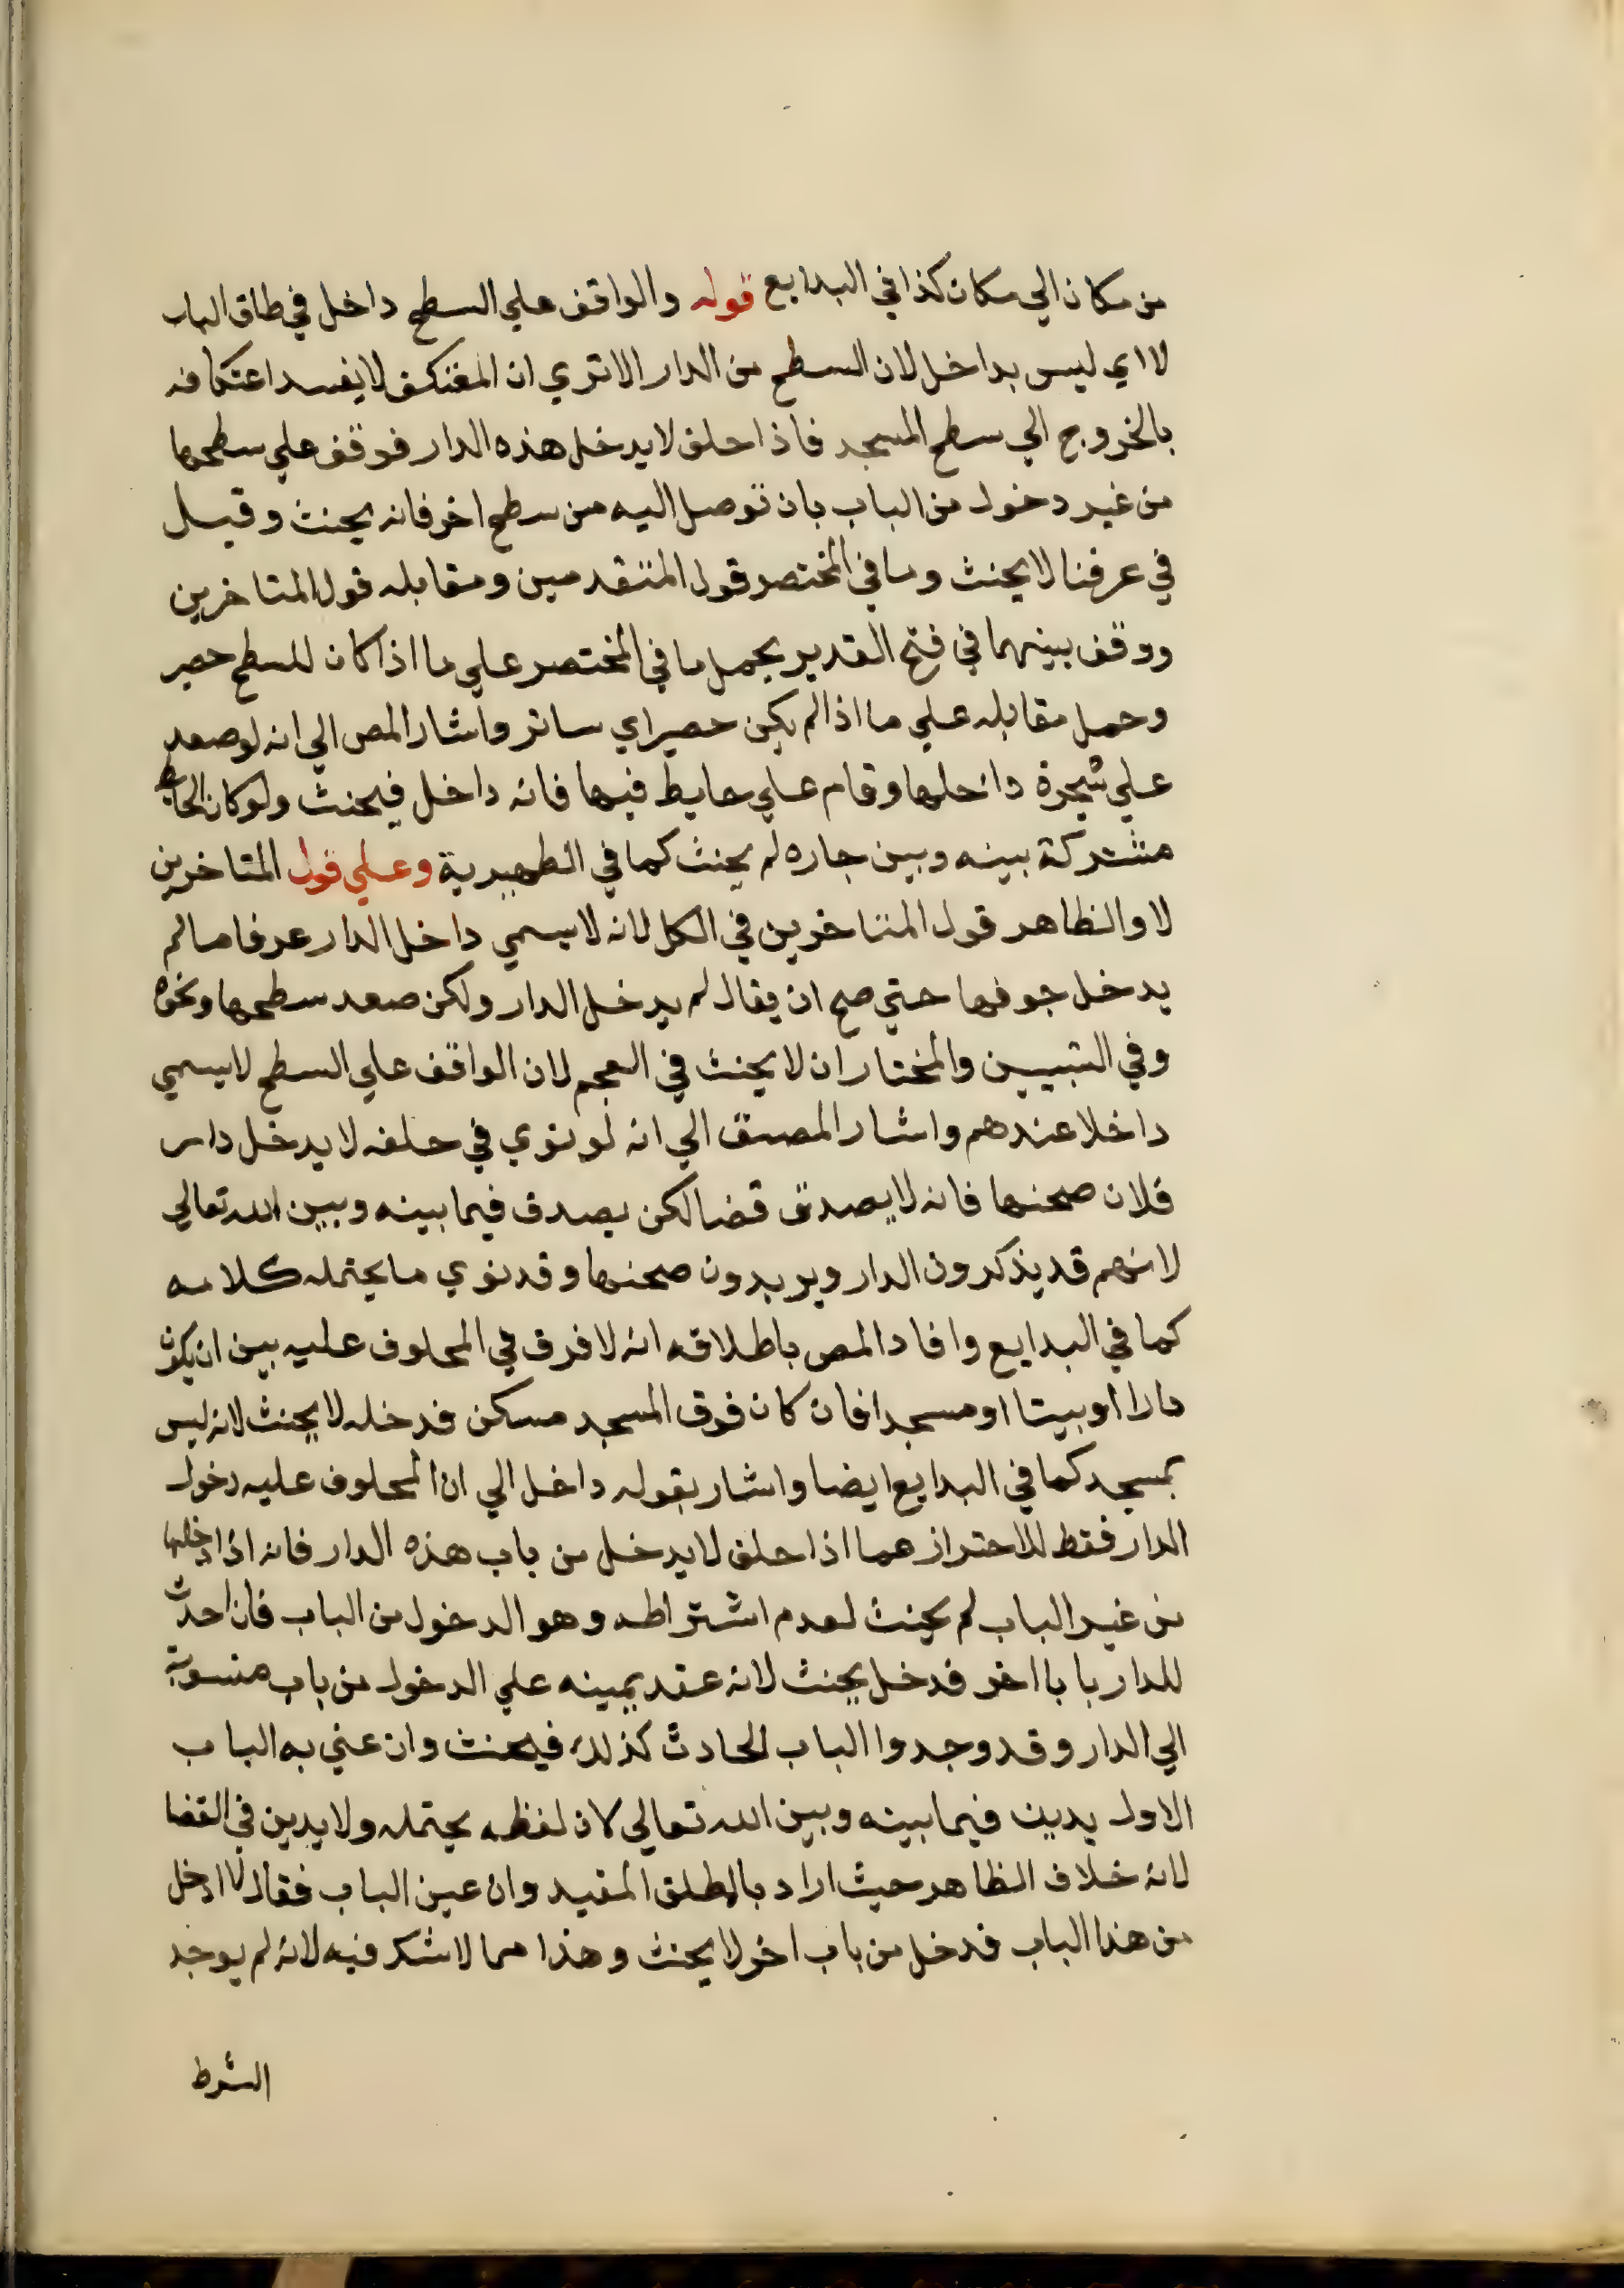 من مكان الي مكان كذا في البدايع قوله والواقف علي السطح داخل في طاق الباب
لا اي ليس بداخل لان السطح من الدار الاتري ان المعتكف لا يفسد اعتكافه
بالخروج الي سطح المسجد فاذا حلف لا يدخل هذه الدار فوقف علي سطحها
من غير دخول من الباب بان توصل اليه من سطح اخر فانه يحنث وقيل
في عرفنا لا يحنث وما في المختصر قول المتقدمين ومقابله قول المتاخرين
ووقف بينهما في فتح القدير بحمل ما في المختصر علي ما اذا كان للسطح حصير
وحمل مقابله علي ما اذا لم يكن حصيراي ساتر واشار المص الي انه لو صعد
علي شجرة داخلها وقام علي حايط فيها فانه داخل فيحنث ولو كان الحايط
مشتركة بينه وبين جاره لم يحنث كما في الظهيرية وعلي قول المتاخرين
لا والظاهر قول المتاخرين في الكل لانه لا يسمي داخل الدار عرفا ما لم
يدخل جوفها حتي صح ان يقال لم يدخل الدار ولكن صعد سطحها ونحوه
وفي التبيين والمختار ان لا يحنث في العجم لان الواقف علي السطح لا يسمي
داخلا عندهم واشار المصنف الي انه لو نوي في حلفه لا يدخل دار
فلان صحنها فانه لا يصدق قضا لكن يصدق فيما بينه وبين الله تعالي
لانهم قد يذكرون الدار ويريدون صحنها وقد نوي ما يحتمله كلامه
كما في البدايع وافاد المص باطلاقه انه لا فرق في المحلوف عليه بين ان يكون
دارا او بيتا او مسجدا فان كان فوق المسجد مسكن فدخله لا يحنث لانه ليس
بمسجد كما في البدايع ايضا واشار بقوله داخل الي ان المحلوف عليه دخول
الدار فقط للاحتراز عما اذا حلف لا يدخل من باب هذه الدار فانه اذا دخلها
من غير الباب لم يحنث لعدم اشتراطه وهو الدخول من الباب فان احدث
للدار بابا اخر فدخل يحنث لانه عقد يمينه علي الدخول من باب منسوبة
الي الدار وقد وجدوا الباب الحادث كذلك فيحنث وان عني به الباب
الاول يدين فيما بينه وبين الله تعالي لان لفظه يحتمله ولا يدين في القضا
لانه خلاف الظاهر حيث اراد بالمطلق المقيد وان عين الباب فقال لا ادخل
من هذا الباب فدخل من باب اخر لا يحنث وهذا مما لا شك فيه لانه لم يوجد
الشرط